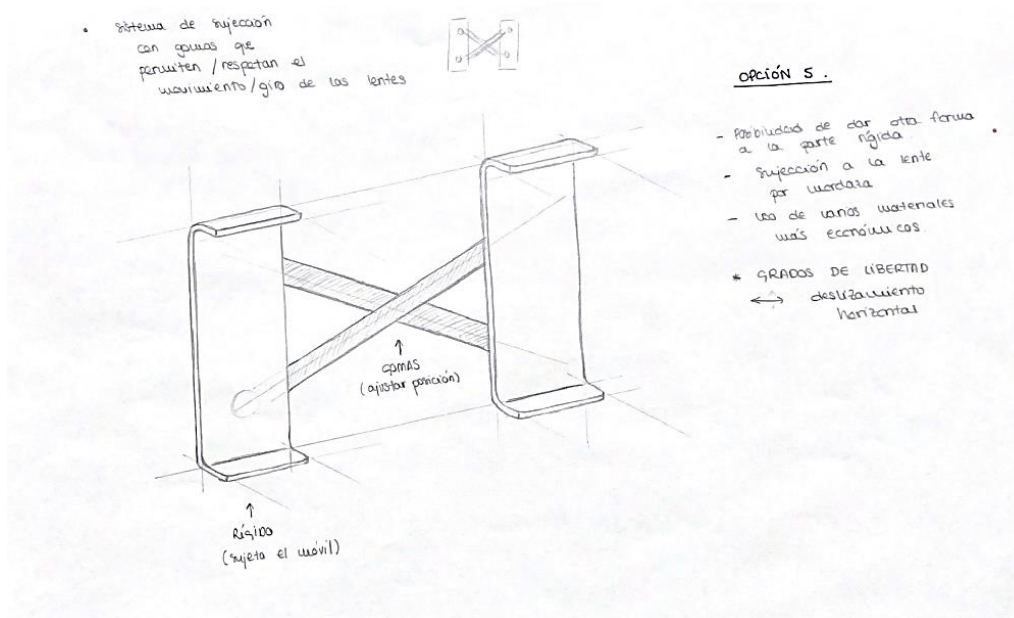 • Sistema de sujección
con gomas que
permiten / respetan el
movimiento / giro de las lentes
OPCIÓN 5.
- Posibilidad de dar otra forma
a la parte rígida.
- Sujección a la lente
por mordaza
- uso de varios materiales
más económicos.
* GRADOS DE LIBERTAD
↔ deslizamiento
horizontal
↑
GOMAS
(ajustar posición)
↑
RÍGIDO
(sujeta el móvil)